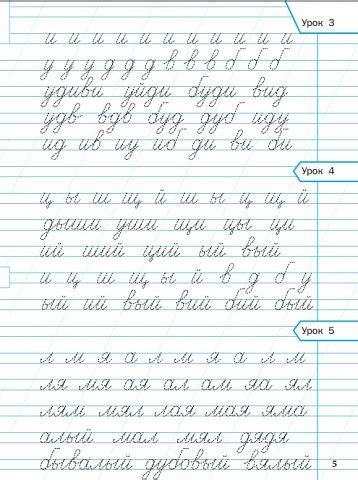 Урок 3
и и и и и и и и и и и
у у у д д д в в в б б б
удиви уйди буди вид
удв вдв буд дуб иду
ид ив иу иб ди ви би
Урок 4
ц ы ш щ й ш ы ц щ й
дыши уши щи цы ци
ий ший ций ый вый
и ц ш щ ы й в д б у
ый ий вый вий бий бый
Урок 5
л м я а л м я а л м
ля мя ая ал ам яа ял
лям мял лая мая яма
алый мал мял дядя
бывалый дубовый вялый
5